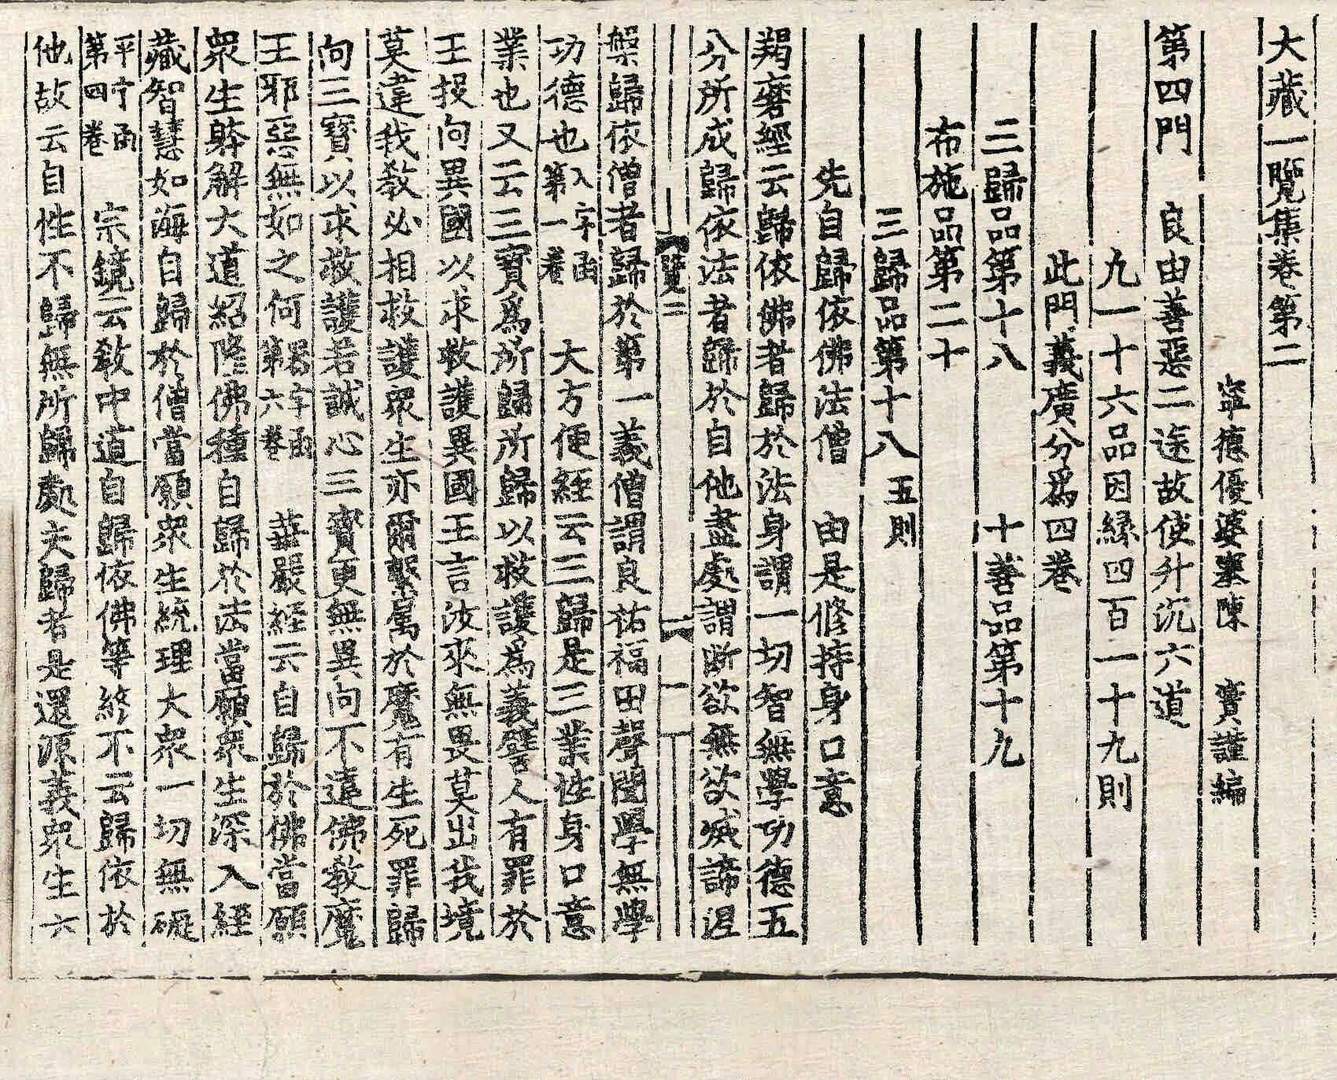 大藏一覽集卷第二
寧德優婆塞陳　實謹編
第四門　良由善惡二途故使升沉六道
九一十六品因緣四百一十九則
此門義廣分爲四卷
三歸品第十八　十善品第十九
布施品第二十
三歸品第十八 五則
先自歸依佛法僧　由是修持身口意
羯磨經云歸依佛者歸於法身謂一切智無學功德五
分所成歸依法者歸於自他盡處謂断欲無欲滅諦涅
覽二　一
槃歸依僧者歸於第一義僧謂良祐福田聲聞學無學
功德也入字函第一卷　大方便經云三歸是三業性身口意
業也又云三寶爲所歸所歸以救護爲義譬人有罪於
王投向異國以求救護異國王言汝來無畏莫出我境
莫違我教必相救護眾生亦爾繫属於魔有生死罪歸
向三寶以求救護若誠心三寶更無異向不違佛教魔
王邪惡無如之何器字函第六卷　華嚴經云自歸於佛當願
眾生躰解大道紹隆佛種自歸於法當願眾生深入經
藏智慧如海自歸於僧當願眾生統理大眾一切無礙
平字函第四卷　宗鏡云教中道自歸依佛等終不云歸依於
他故云自性不歸無所歸處夫歸者是還源義眾生六